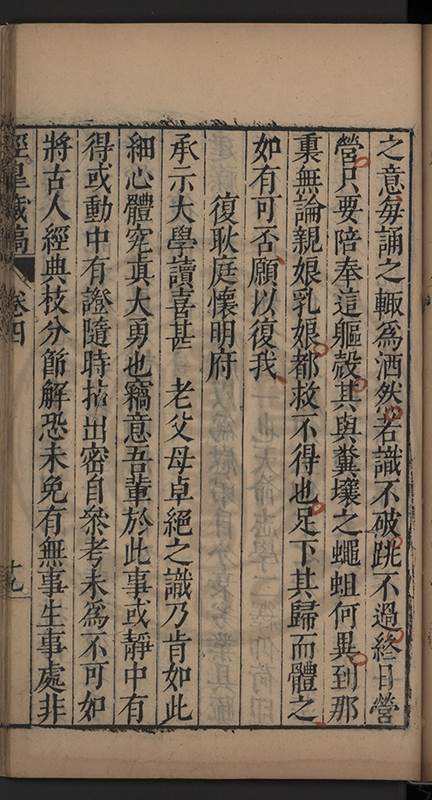 之意每誦之輙爲洒然若識不破跳不過終日營
營只要陪奉這軀殼其與糞壤之蠅蛆何異到那
裏無論親娘乳娘都救不得也足下其歸而體之
如有可否願以復我
復耿庭懷明府
承示大學讀喜甚　老父母卓絕之識乃肯如此
細心體究眞大勇也竊意吾輩於此事或靜中有
得或動中有證隨時拈出密自叅考未爲不可如
將古人經典枝分節解恐未免有無事生事處非
涇臯藏稿
卷四
十九